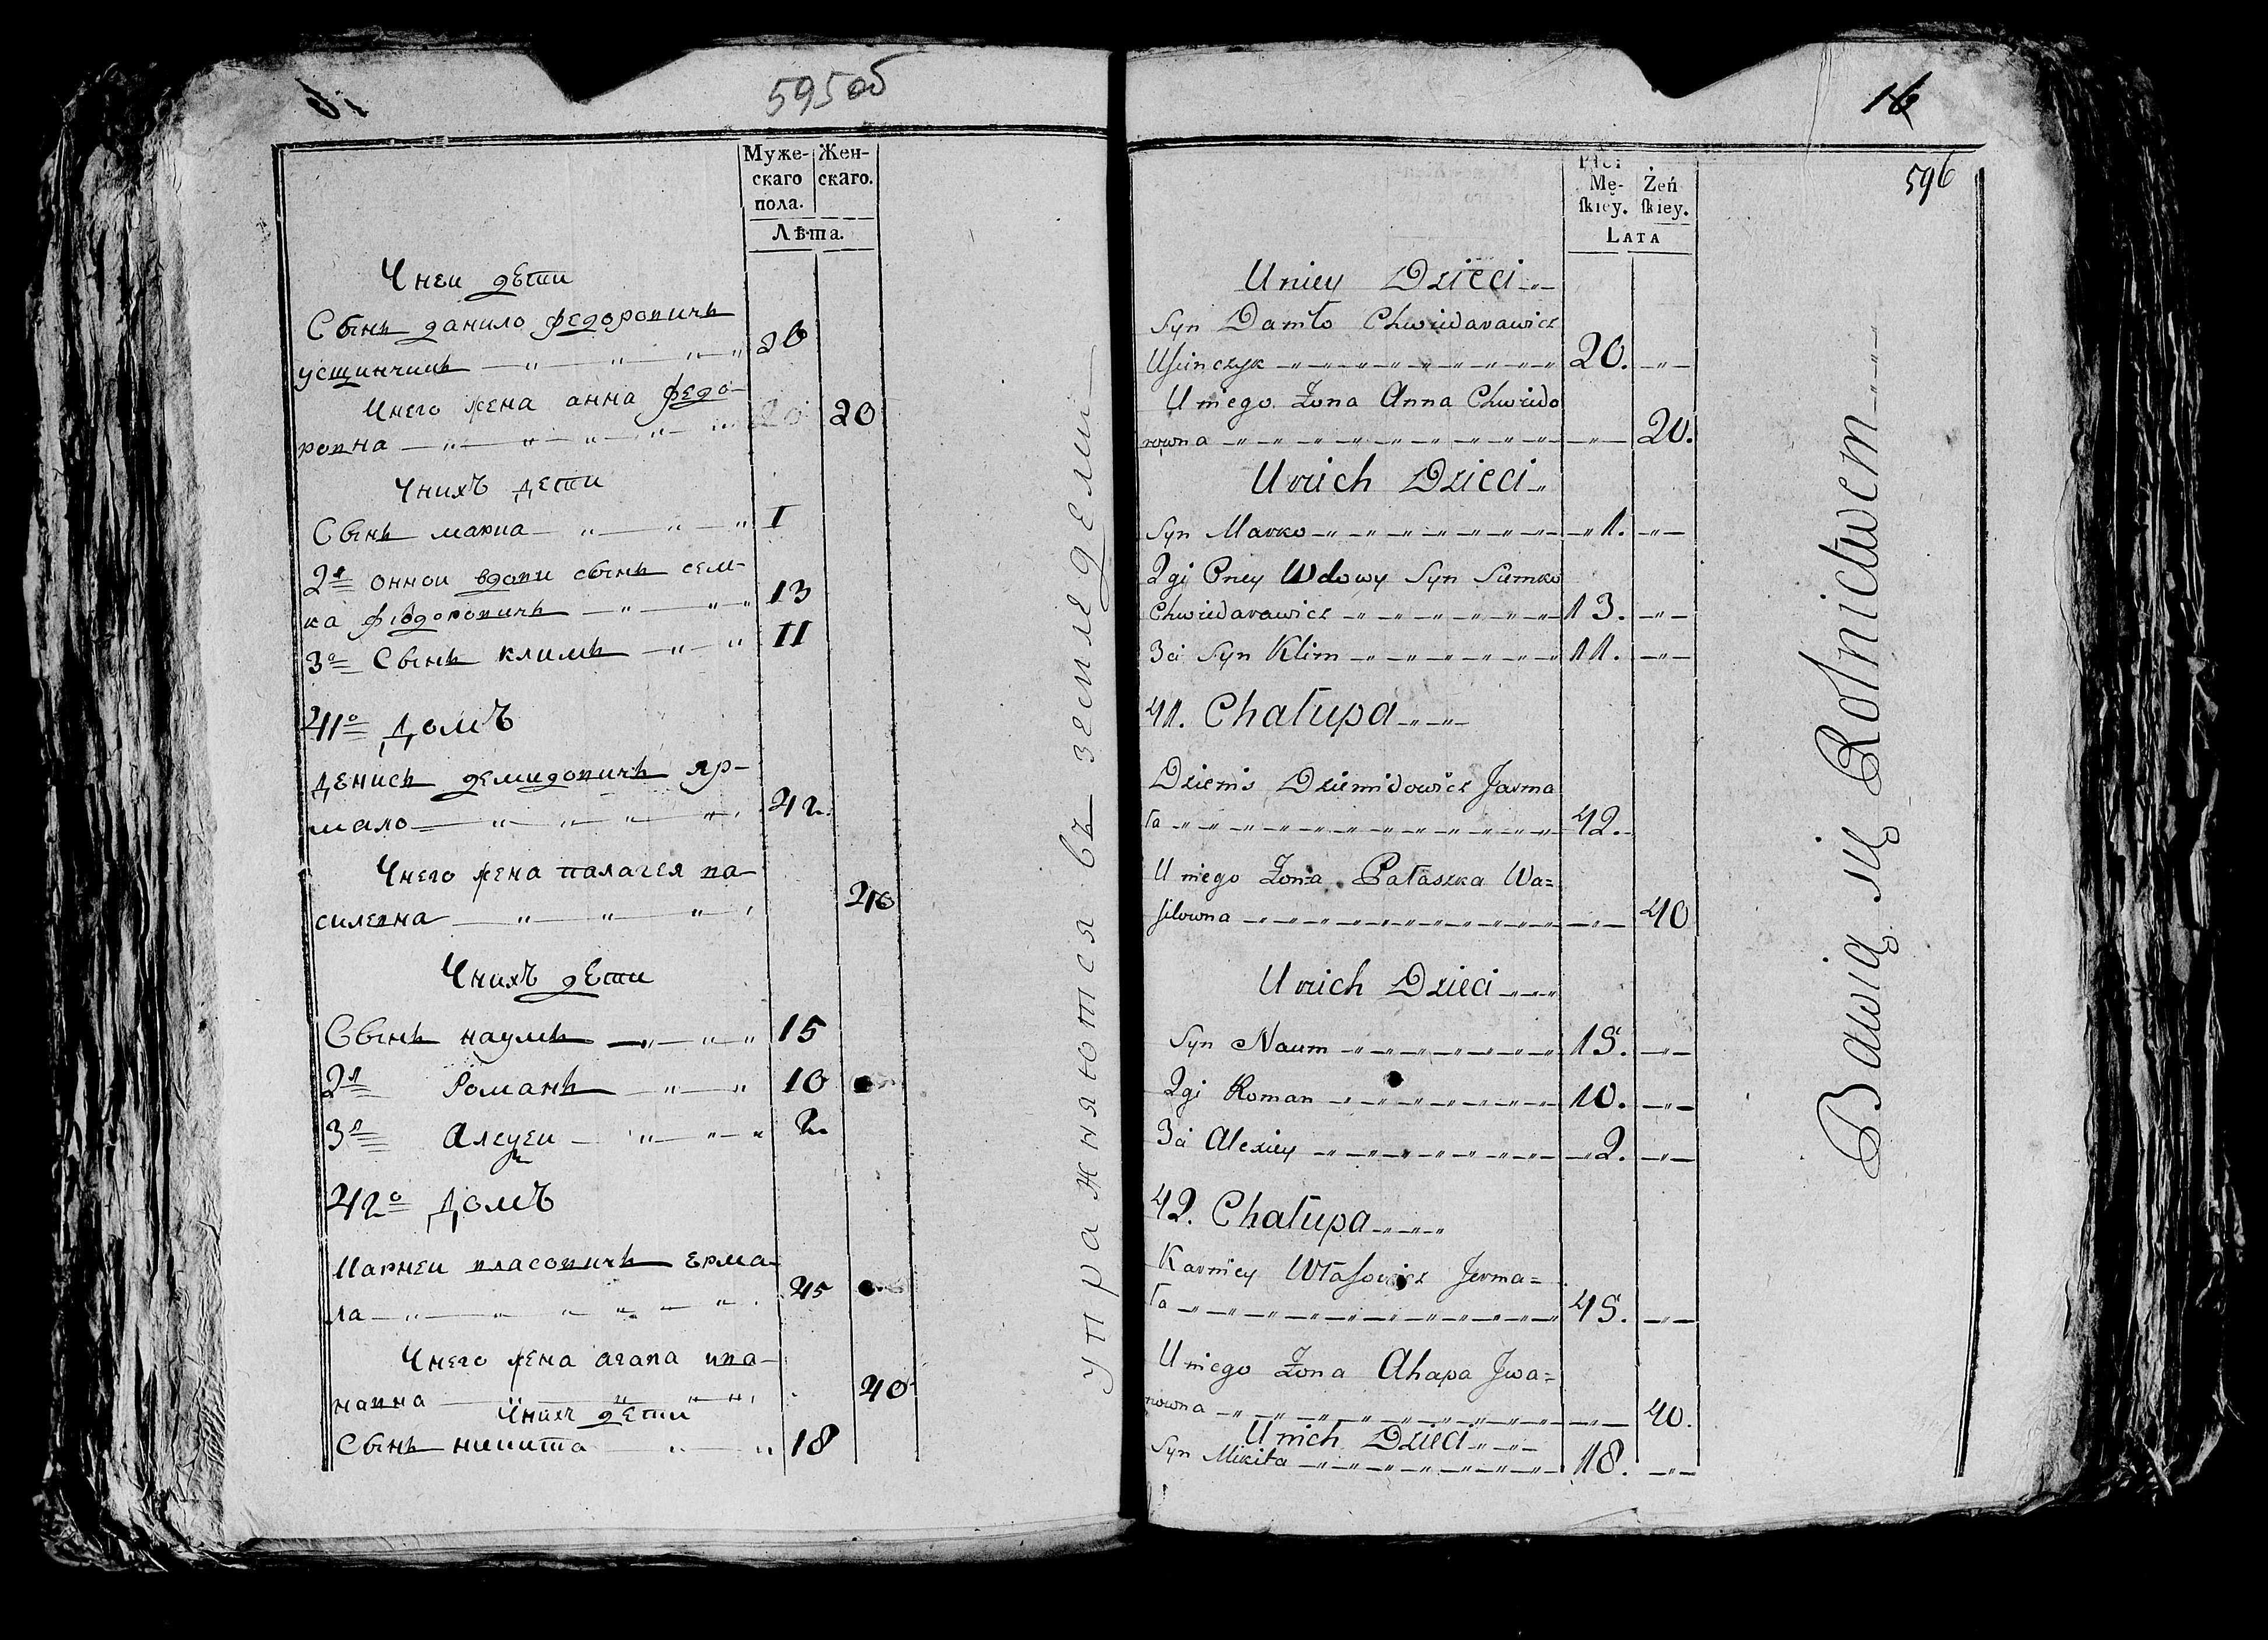 595об
Муже-
скаго
пола.
Жен-
скаго.
Лѣта.
Унеи дѣти
Сынъ данило федоровичъ
усщинчикъ 20
Унего жена анна федо-
ровна 20
Унихъ дети
Сынъ марка 1
2й онной вдови сынъ сем-
ка фіодоровичъ 13
3й Сынъ климъ 11
41й домъ
денисъ демидовичъ яр-
мало 42
Унего жена палагея ва-
силевна 40
Унихъ дѣти
Сынъ наумъ 15
2й Романъ 10
3й Алеѯеи 2
42й домъ
Карнеи власовичъ ерма-
ла 45
Унего жена агапа ива-
навна 40
Унихъ дѣти
Сынъ никита 18
упражняютося въ земледели
16
596
Płci
Mę-
ſkiey.
Żeń
ſkiey.
LATA
U niey Dzieci
Syn Daniło Chwiedarawicz
Uſzinczyk 20.
U niego Żona Anna Chwiedo
rowna 20.
U nich Dzieci
Syn Marko 1.
2gi Oney Wdowy Syn Siemko
Chwiedarawicz 13.
3ci Syn Klim 11.
41. Chałupa
Dzienis Dziemidowicz Jarma
ła 42.
U niego Żona Pałaszka Wa=
ſilowna 40
U nich Dzieci
Syn Naum 15.
2gi Roman 10.
3ci Alexiey 2.
42. Chałupa
Karniey Właſowicz Jerma=
ła 45.
U niego Żona Ahapa Jwa=
nowna 40.
U nich Dzieci
Syn Mikita 18.
Bawią się Rolnictwem